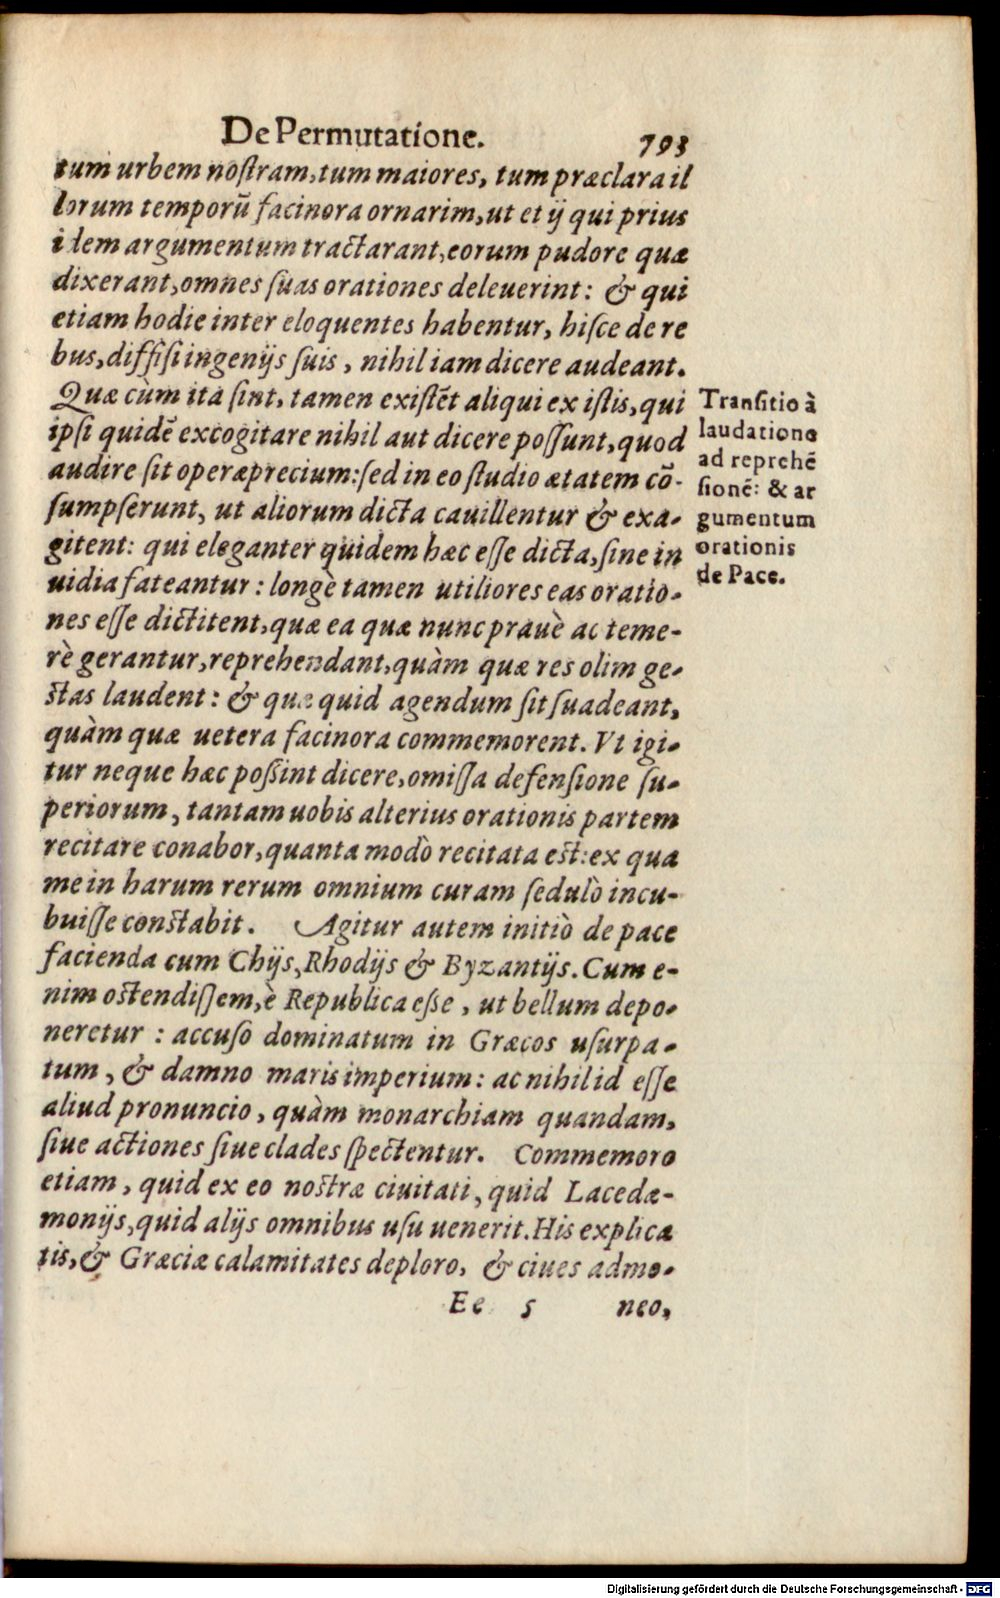 De Permutatione. 793
tum urbem noſtram, tum maiores, tum præclara il
lorum temporū facinora ornarim, ut et ij qui prius
idem argumentum tractarant, eorum pudore quæ
dixerant, omnes ſuas orationes deleuerint: & qui
etiam hodie inter eloquentes habentur, hiſce de re
bus, diffiſi ingenijs ſuis, nihil iam dicere audeant.
Quæ cùm ita ſint, tamen exiſtēt aliqui ex iſtis, qui
ipſi quidē excogitare nihil aut dicere poſſunt, quod
audire ſit operæprecium: ſed in eo ſtudio ætatem cō-
ſumpſerunt, ut aliorum dicta cauillentur & exa-
gitent: qui eleganter quidem hæc eſſe dicta, ſine in
uidia fateantur: longè tamen utiliores eas oratio-
nes eſſe dictitent, quæ ea quæ nunc prauè ac teme-
rè gerantur, reprehendant, quàm quæ res olim ge-
ſtas laudent: & quæ quid agendum ſit ſuadeant,
quàm quæ uetera facinora commemorent. Vt igi-
tur neque hæc poßint dicere, omiſſa defenſione ſu-
periorum, tantam uobis alterius orationis partem
recitare conabor, quanta modò recitata eſt: ex qua
me in harum rerum omnium curam ſedulò incu-
buiſſe conſtabit. Agitur autem initiò de pace
facienda cum Chijs, Rhodijs & Byzantijs. Cum e-
nim oſtendiſſem, è Republica eße, ut bellum depo-
neretur: accuſo dominatum in Græcos uſurpa-
tum, & damno maris imperium: ac nihil id eſſe
aliud pronuncio, quàm monarchiam quandam,
ſiue actiones ſiue clades ſpectentur. Commemoro
etiam, quid ex eo noſtræ ciuitati, quid Lacedæ-
monijs, quid alijs omnibus uſu uenerit. His explica
tis, & Græciæ calamitates deploro, & ciues admo-
Ee 5 neo,
Tranſitio à
laudatione
ad reprehē
ſionē: & ar
gumentum
orationis
de Pace.
Digitalisierung gefördert durch die Deutsche Forschungsgemeinschaft - DFG